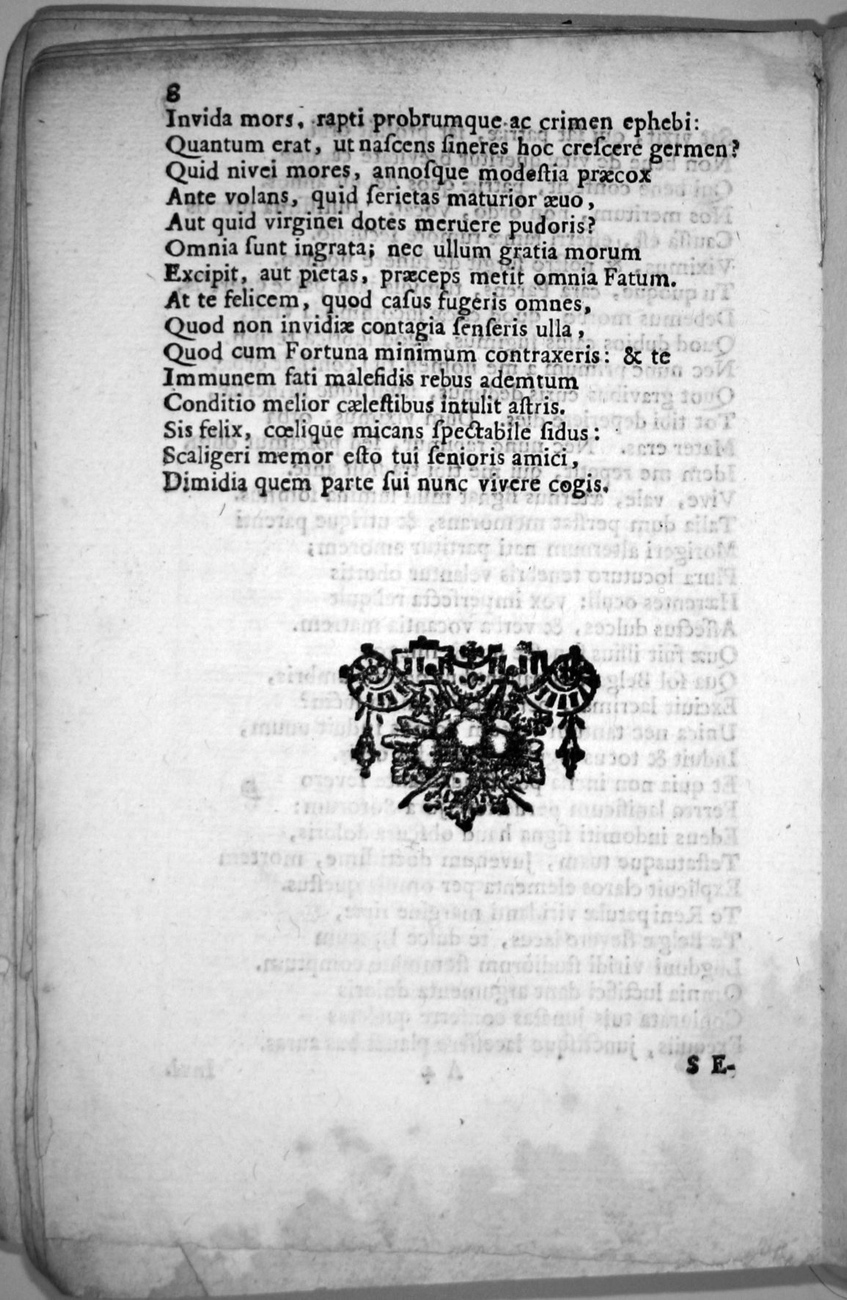 8
Invida mors, rapti probrumque ac crimen ephebi:
Quantum erat, ut naſcens ſineres hoc creſcere germen?
Quid nivei mores, annoſque modeſtia præcox
Ante volans, quid ſerietas maturior æuo,
Aut quid virginei dotes meruere pudoris?
Omnia ſunt ingrata; nec ullum gratia morum
Excipit, aut pietas, præceps metit omnia Fatum.
At te felicem, quod caſus fugeris omnes,
Quod non invidiæ contagia ſenſeris ulla,
Quod cum Fortuna minimum contraxeris: & te
Immunem fati malefidis rebus ademtum
Conditio melior cæleſtibus intulit aſtris.
Sis felix, cœlique micans ſpectabile ſidus:
Scaligeri memor eſto tui ſenioris amici,
Dimidia quem parte ſui nunc vivere cogis.
S E-